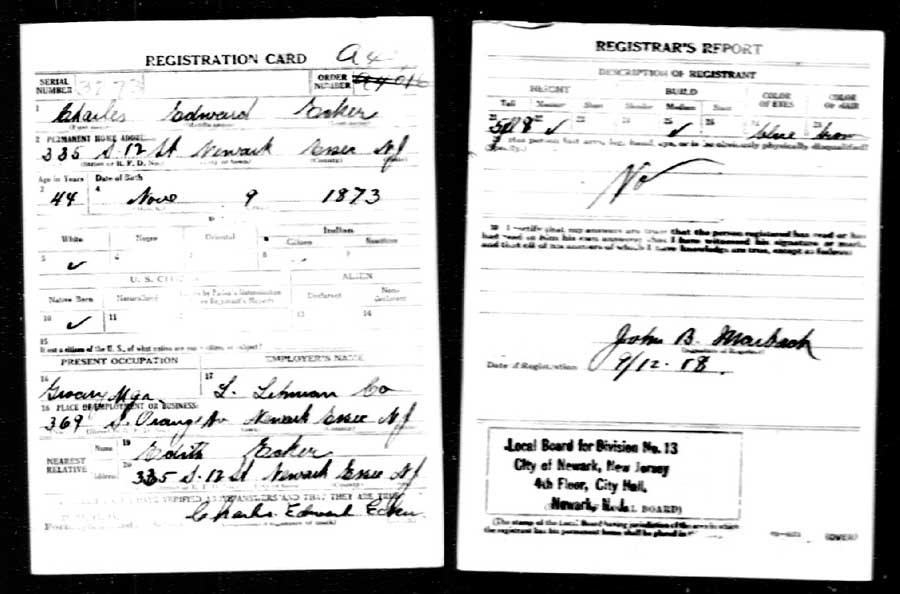 REGISTRATION CARD
SERIAL NUMBER 3273
ORDER NUMBER
1 Charles Edward Ecker
2 PERMANENT HOME ADDRESS:
335 S. 12 St Newark Essex NJ
(Street or R. F. D. No.)
Age in Years
Date of Birth
3
4
44 Nove 9 1873
White
Negro
Oriental
Indian
Citizen
5 ✓
6
7
8
9
U. S.
ALIEN
Native Born
Naturalized
Declarant
Non-declarant
10 ✓
11
13
14
15
If not a citizen of the U. S., of what nation are you a citizen or subject?
PRESENT OCCUPATION
EMPLOYER'S NAME
16 Grocery Mgr.
17 L. Lehman Co
18 PLACE OF EMPLOYMENT OR BUSINESS:
369 S. Orange Av Newark Essex NJ
NEAREST RELATIVE
Name 19 Edith Ecker
Address 20 335 S. 12 St. Newark Essex NJ
I AFFIRM THAT I HAVE VERIFIED ABOVE ANSWERS AND THAT THEY ARE TRUE
Charles Edward Ecker
REGISTRAR'S REPORT
DESCRIPTION OF REGISTRANT
HEIGHT
BUILD
COLOR OF EYES
COLOR OF HAIR
Tall
Medium
Short
Slender
Medium
Stout
21
22 ✓
23
24
25 ✓
26
blue
29 Has person lost arm, leg, hand, eye, or is he obviously physically disqualified?
(Specify.)
No
30 I certify that my answers are true; that the person registered has read or has
had read to him his own answers; that I have witnessed his signature or mark,
and that all of his answers of which I have knowledge are true, except as follows:
John B. Marbach
(Signature of Registrar)
Date of Registration 9/12-18.
Local Board for Division No. 13
City of Newark, New Jersey
4th Floor, City Hall,
Newark, N.J.
(The stamp of the Local Board having jurisdiction of the area in which
the registrant has his permanent home shall be placed in
(OVER)